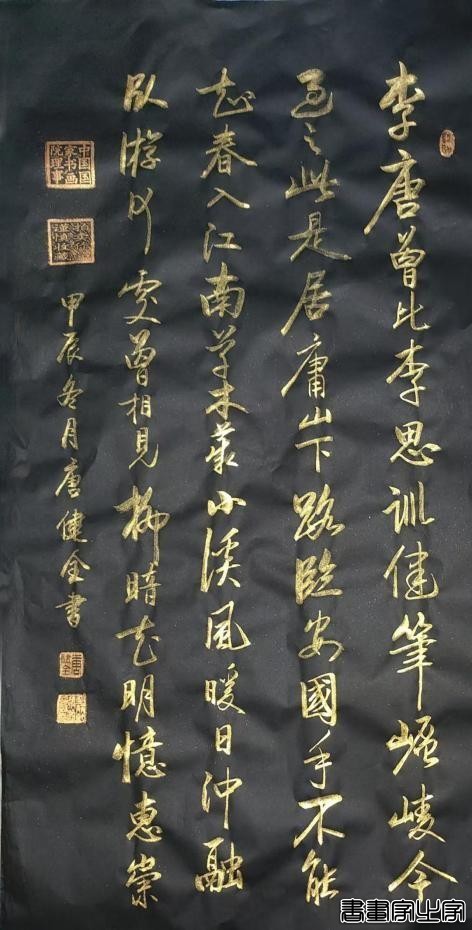 李唐曾比李思训健筆崛崚今
之此是居庸山下路臨安國手不能
知春入江南草木小溪風暖日沖融
臥游何處曾相見柳暗花明憶惠崇
甲辰冬月唐健全書
中国国家书画院理事
書畫家止字